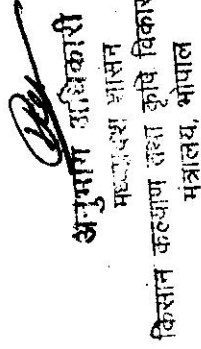 अनुभाग अधिकारी
मध्यप्रदेश शासन
किसान कल्याण तथा कृषि विकास
मंत्रालय, भोपाल